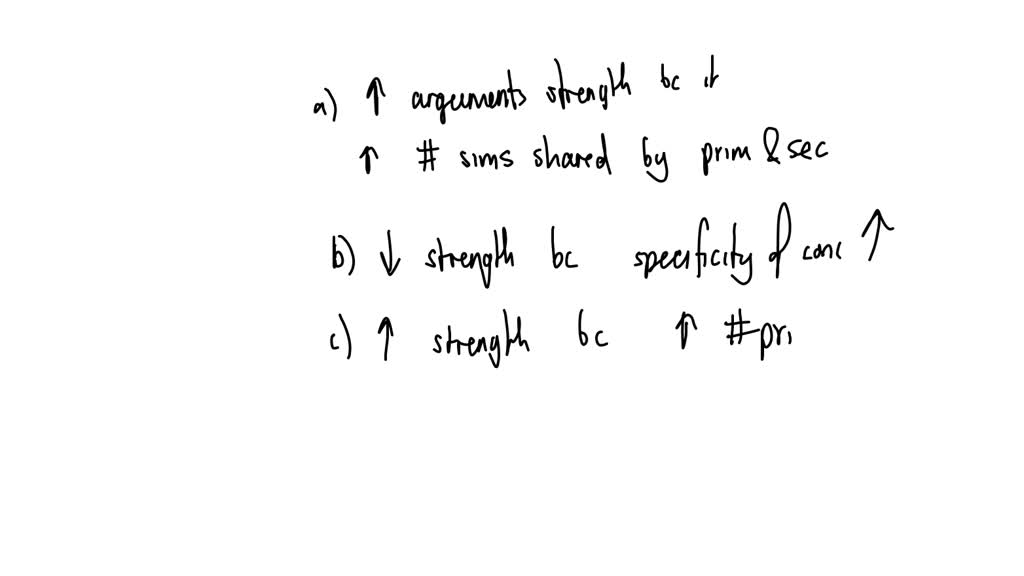 a) ↑ arguments strength bc it
↑ # sims shared by prim & sec
b) ↓ strength bc specificity of conc ↑
c) ↑ strength bc ↑ #pri